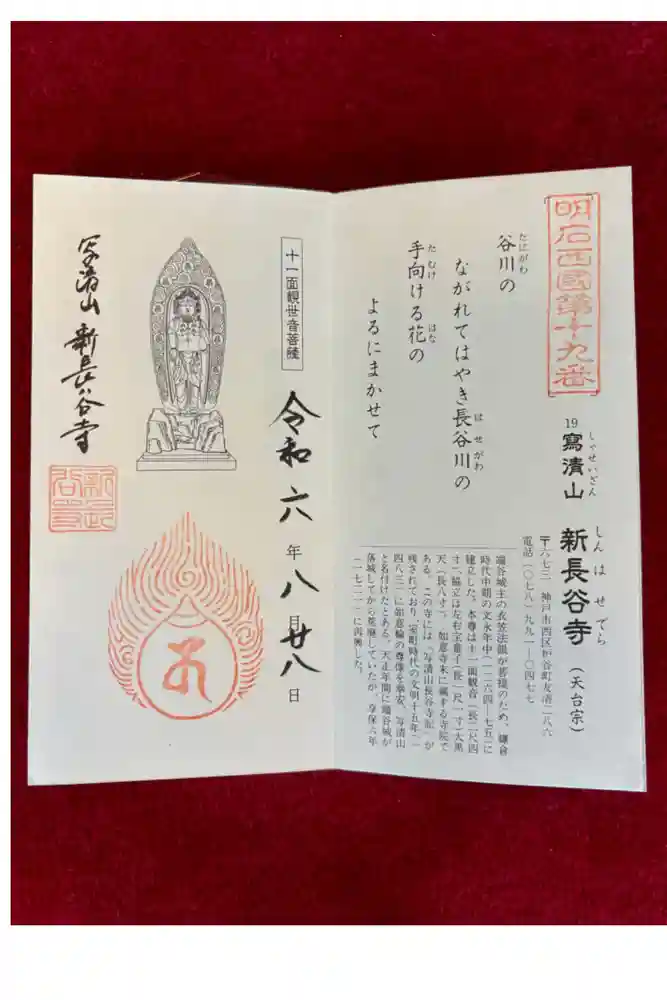 明石西國第十九番
19 寫清山 新長谷寺 (天台宗)
しゃせいざん しんはせでら
〒六七三 神戸市西区枦谷町友清二八六
電話(〇七八)九九一―〇四七七
谷川の
たにがわ
ながれてはやき長谷川の
はせがわ
手向ける花の
たむ はな
よるにまかせて
端谷城主の衣笠法眼が菩提のため、鎌倉
時代中期の文永年中(一二六四―七五)に
建立した。本尊は十一面観音(長二尺四
寸)、脇立は左右宝童子(長一尺一寸)大黒
天(長八寸)、如意寺末に属する寺院で
ある。この寺には「写清山長谷寺記」が
残されており、室町時代の文明十五年(一
四八三)に如意輪の尊像を奉安、写清山
と名付けたとある。天正年間に端谷城が
落城してから荒廃していたが、享保六年
(一七二一)に再興した。
十一面観世音菩薩
令和六年八月廿八日
写清山 新長谷寺
新長谷寺